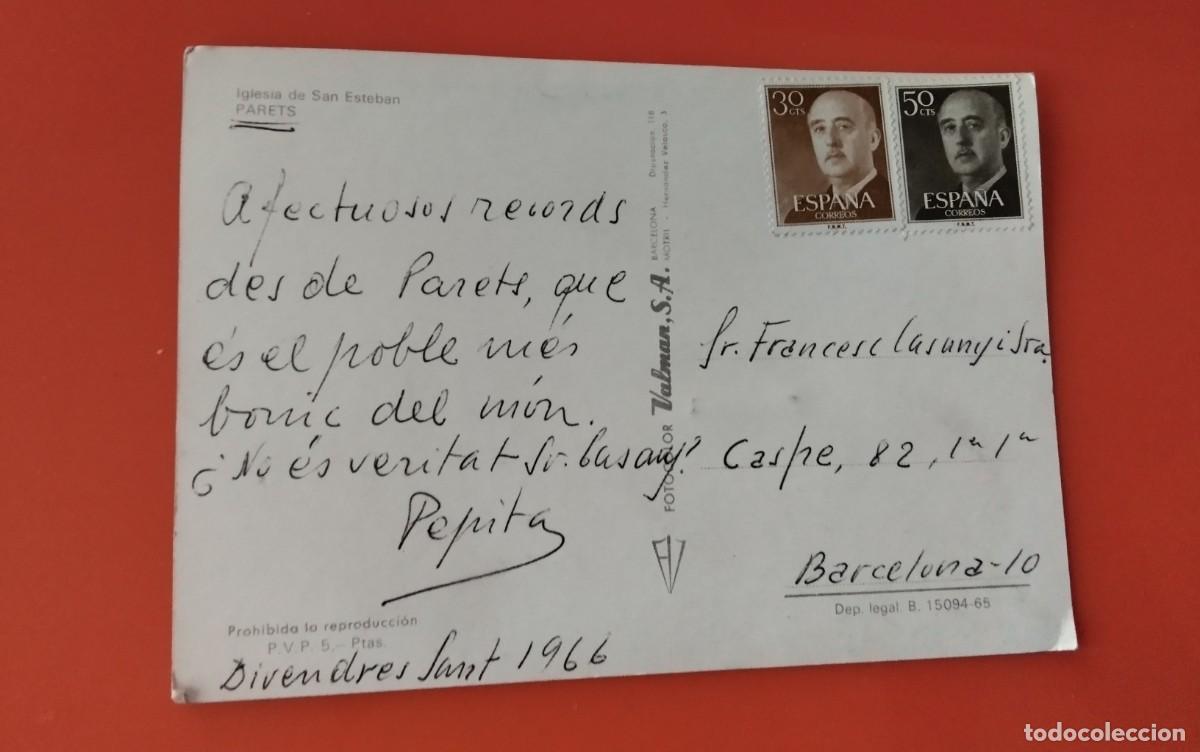 Iglesia de San Esteban
PARETS
Afectuosos records
des de Parets, que
és el poble més
bonic del món.
¿No és veritat Sr. Casany?
Pepita
Prohibida la reproducción
P.V.P. 5,- Ptas.
Divendres Sant 1966
FOTOCOLOR Valman, S.A. BARCELONA Diputación, 118
MOTRIL - Hernandez Velasco, 3
30 CTS
ESPAÑA
CORREOS
F.N.M.T.
50 CTS
ESPAÑA
CORREOS
F.N.M.T.
Sr. Francesc Casany i Sra.
Caspe, 82, 1ª 1ª
Barcelona-10
Dep. legal B. 15094-65
todocoleccion